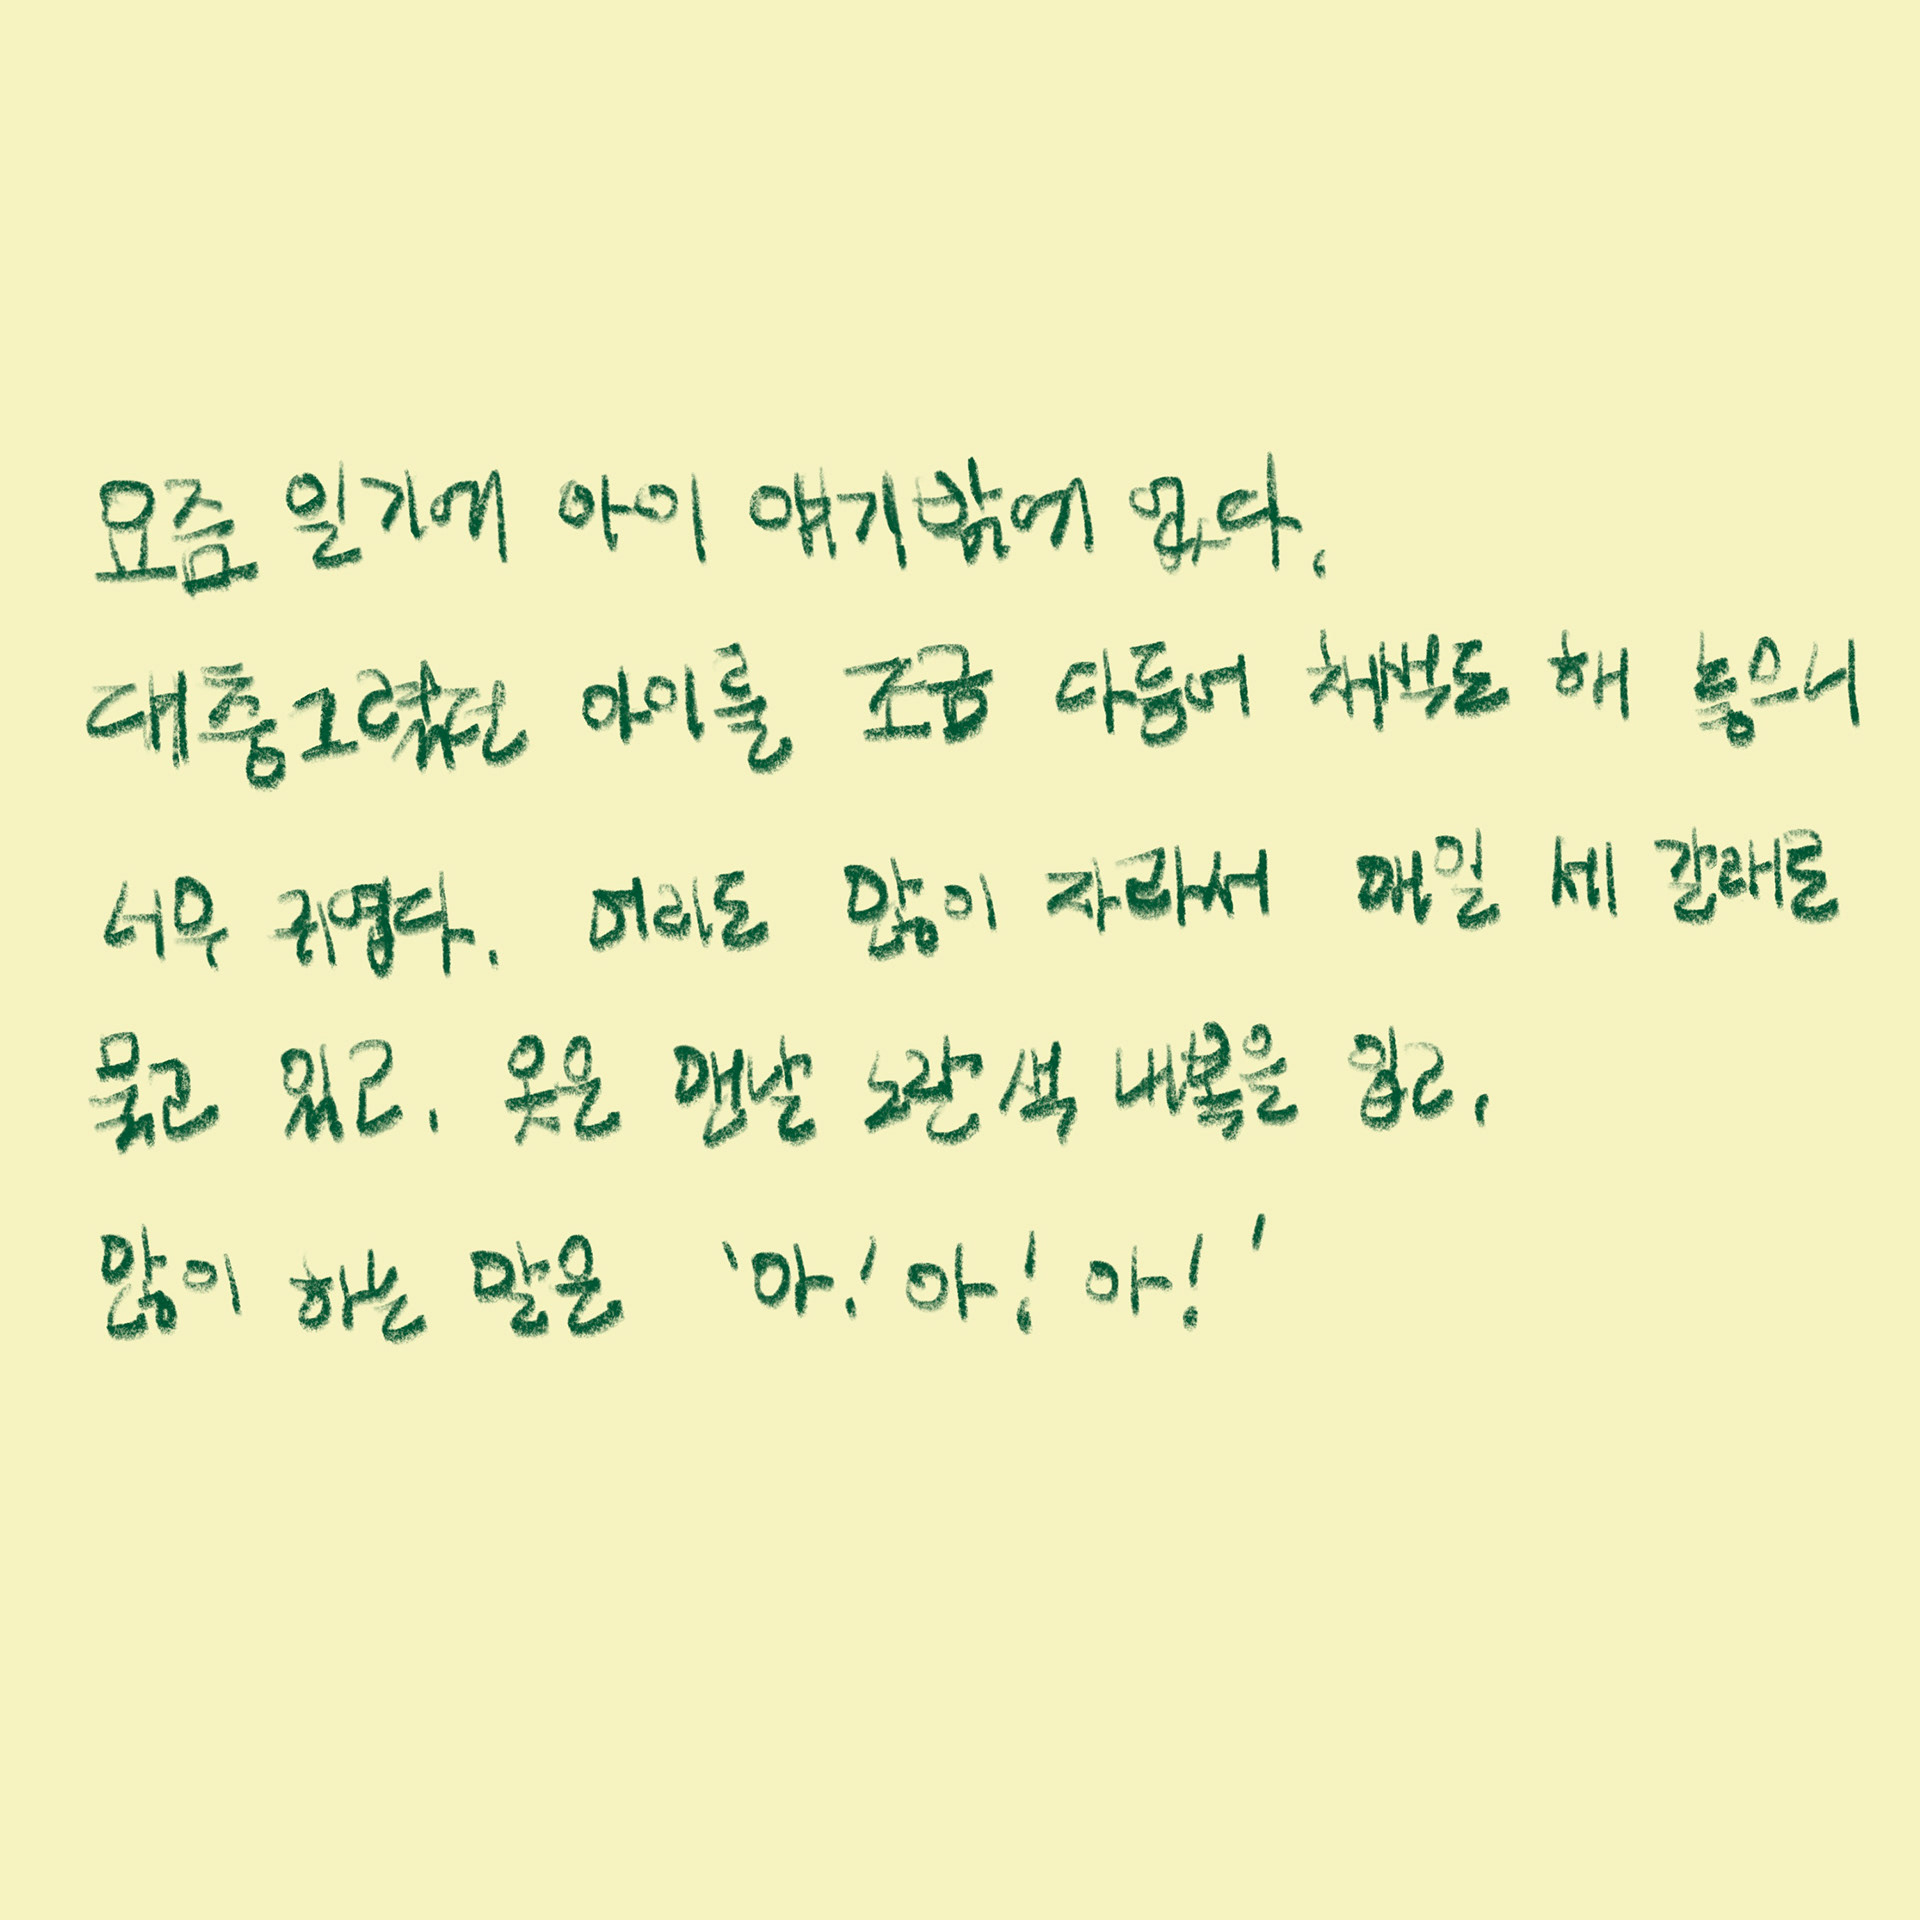 요즘 일기에 아이 얘기밖에 없다.
대충그렸던 아이를 조금 다듬어 채색도 해 놓으니
너무 귀엽다. 머리도 많이 자라서 매일 세 갈래로
묶고 있고. 옷은 맨날 노란색 내복을 입고.
많이 하는 말은 '아! 아! 아!'